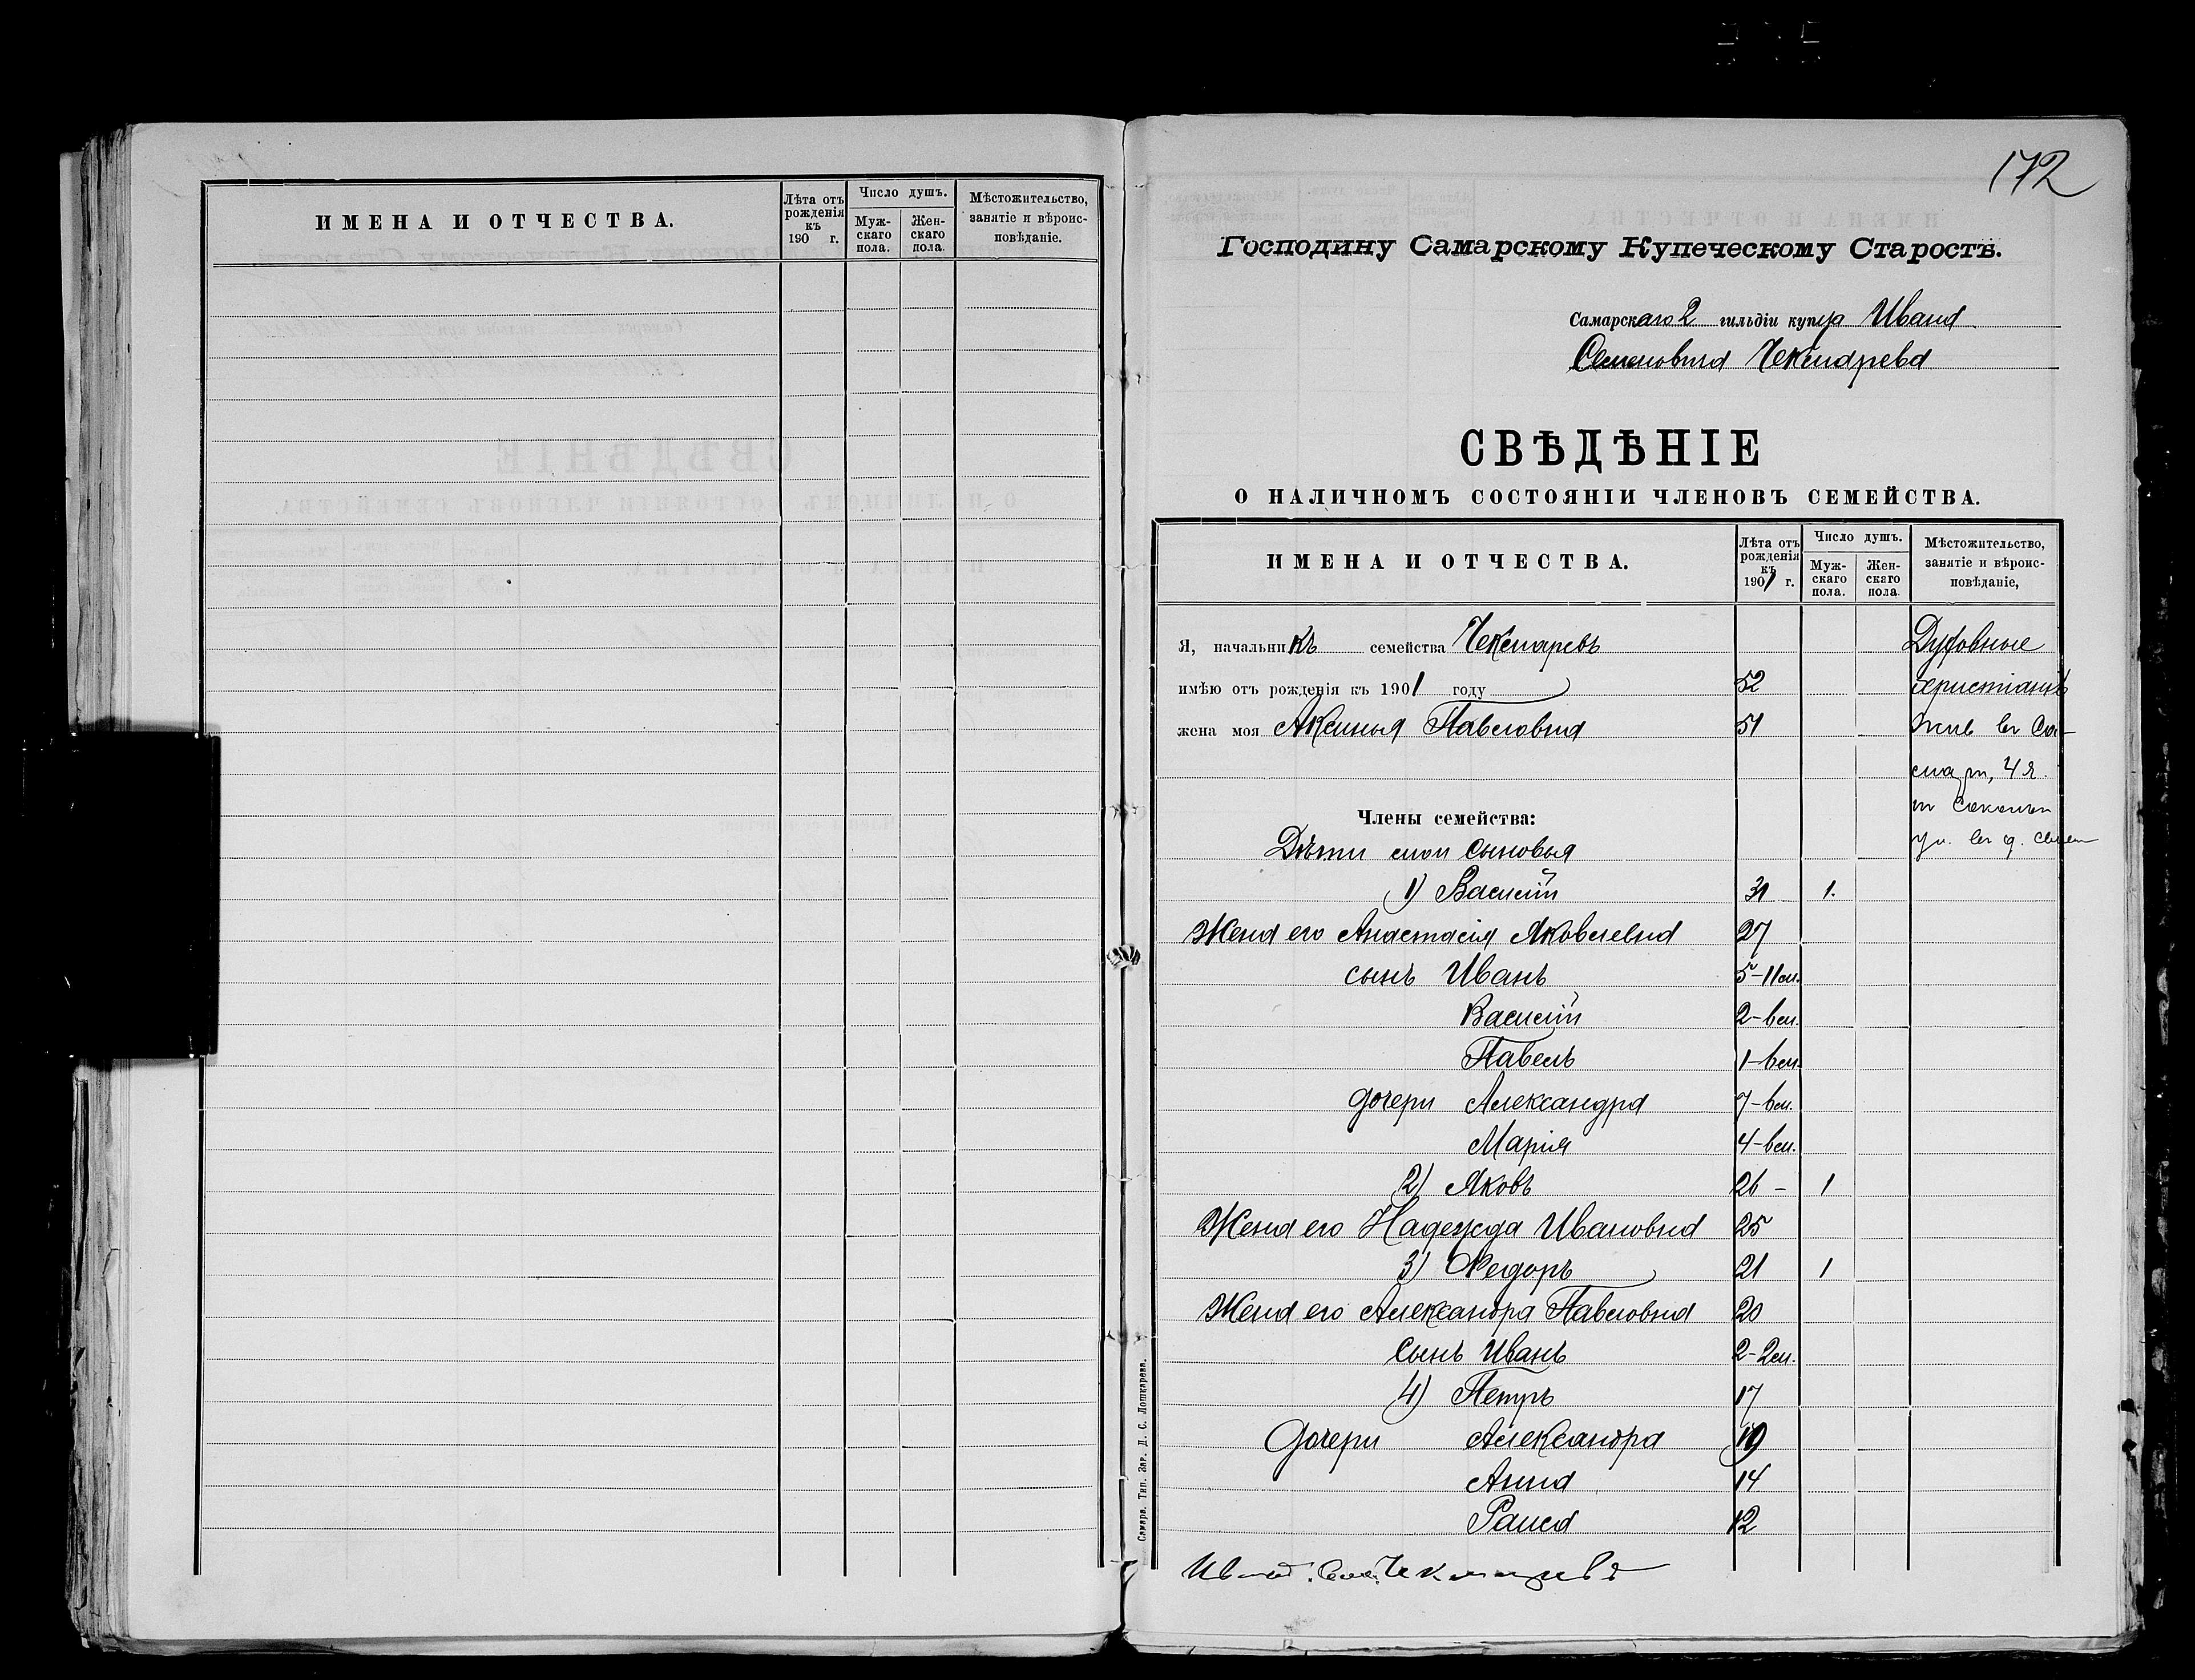 ИМЕНА И ОТЧЕСТВА.
Лѣта отъ рожденія къ 190 г.
Число душъ.
Мужскаго пола.
Женскаго пола.
Мѣстожительство, занятіе и вѣроисповѣданіе.
172
Господину Самарскому Купеческому Старостѣ.
Самарскаго 2 гильдіи купца Ивана
Семеновича Чекмарева
СВѢДѢНІЕ
О НАЛИЧНОМЪ СОСТОЯНІИ ЧЛЕНОВЪ СЕМЕЙСТВА.
ИМЕНА И ОТЧЕСТВА.
Лѣта отъ рожденія къ 1901 г.
Число душъ.
Мужскаго пола.
Женскаго пола.
Мѣстожительство, занятіе и вѣроисповѣданіе,
Я, начальникъ семейства Чекмаревъ Духовные
имѣю отъ рожденія къ 1901 году 52 христіанъ
жена моя Аксинья Павловна 51 жив въ Са-
мар, 4 я
Члены семейства:
ул. въ д. своем
Дѣти мои сыновья
1) Василій 31 1.
Жена его Анастасія Яковлевна 27
сынъ Иванъ 5-11м.
Василій 2-6м.
Павелъ 1-6м.
дочери Александра 7-6м.
Марія 4-6м.
2) Яковъ 26 - 1
Жена его Надежда Ивановна 25
3) Федоръ 21 1
Жена его Александра Павловна 20
Сынъ Иванъ 2-2м.
4) Петръ 17
Дочери Александра 19
Анна 14
Раиса 12
Иванъ Сем. Чекмаревъ
Самара. Тип. Заг. Д. С. Лошкарева.